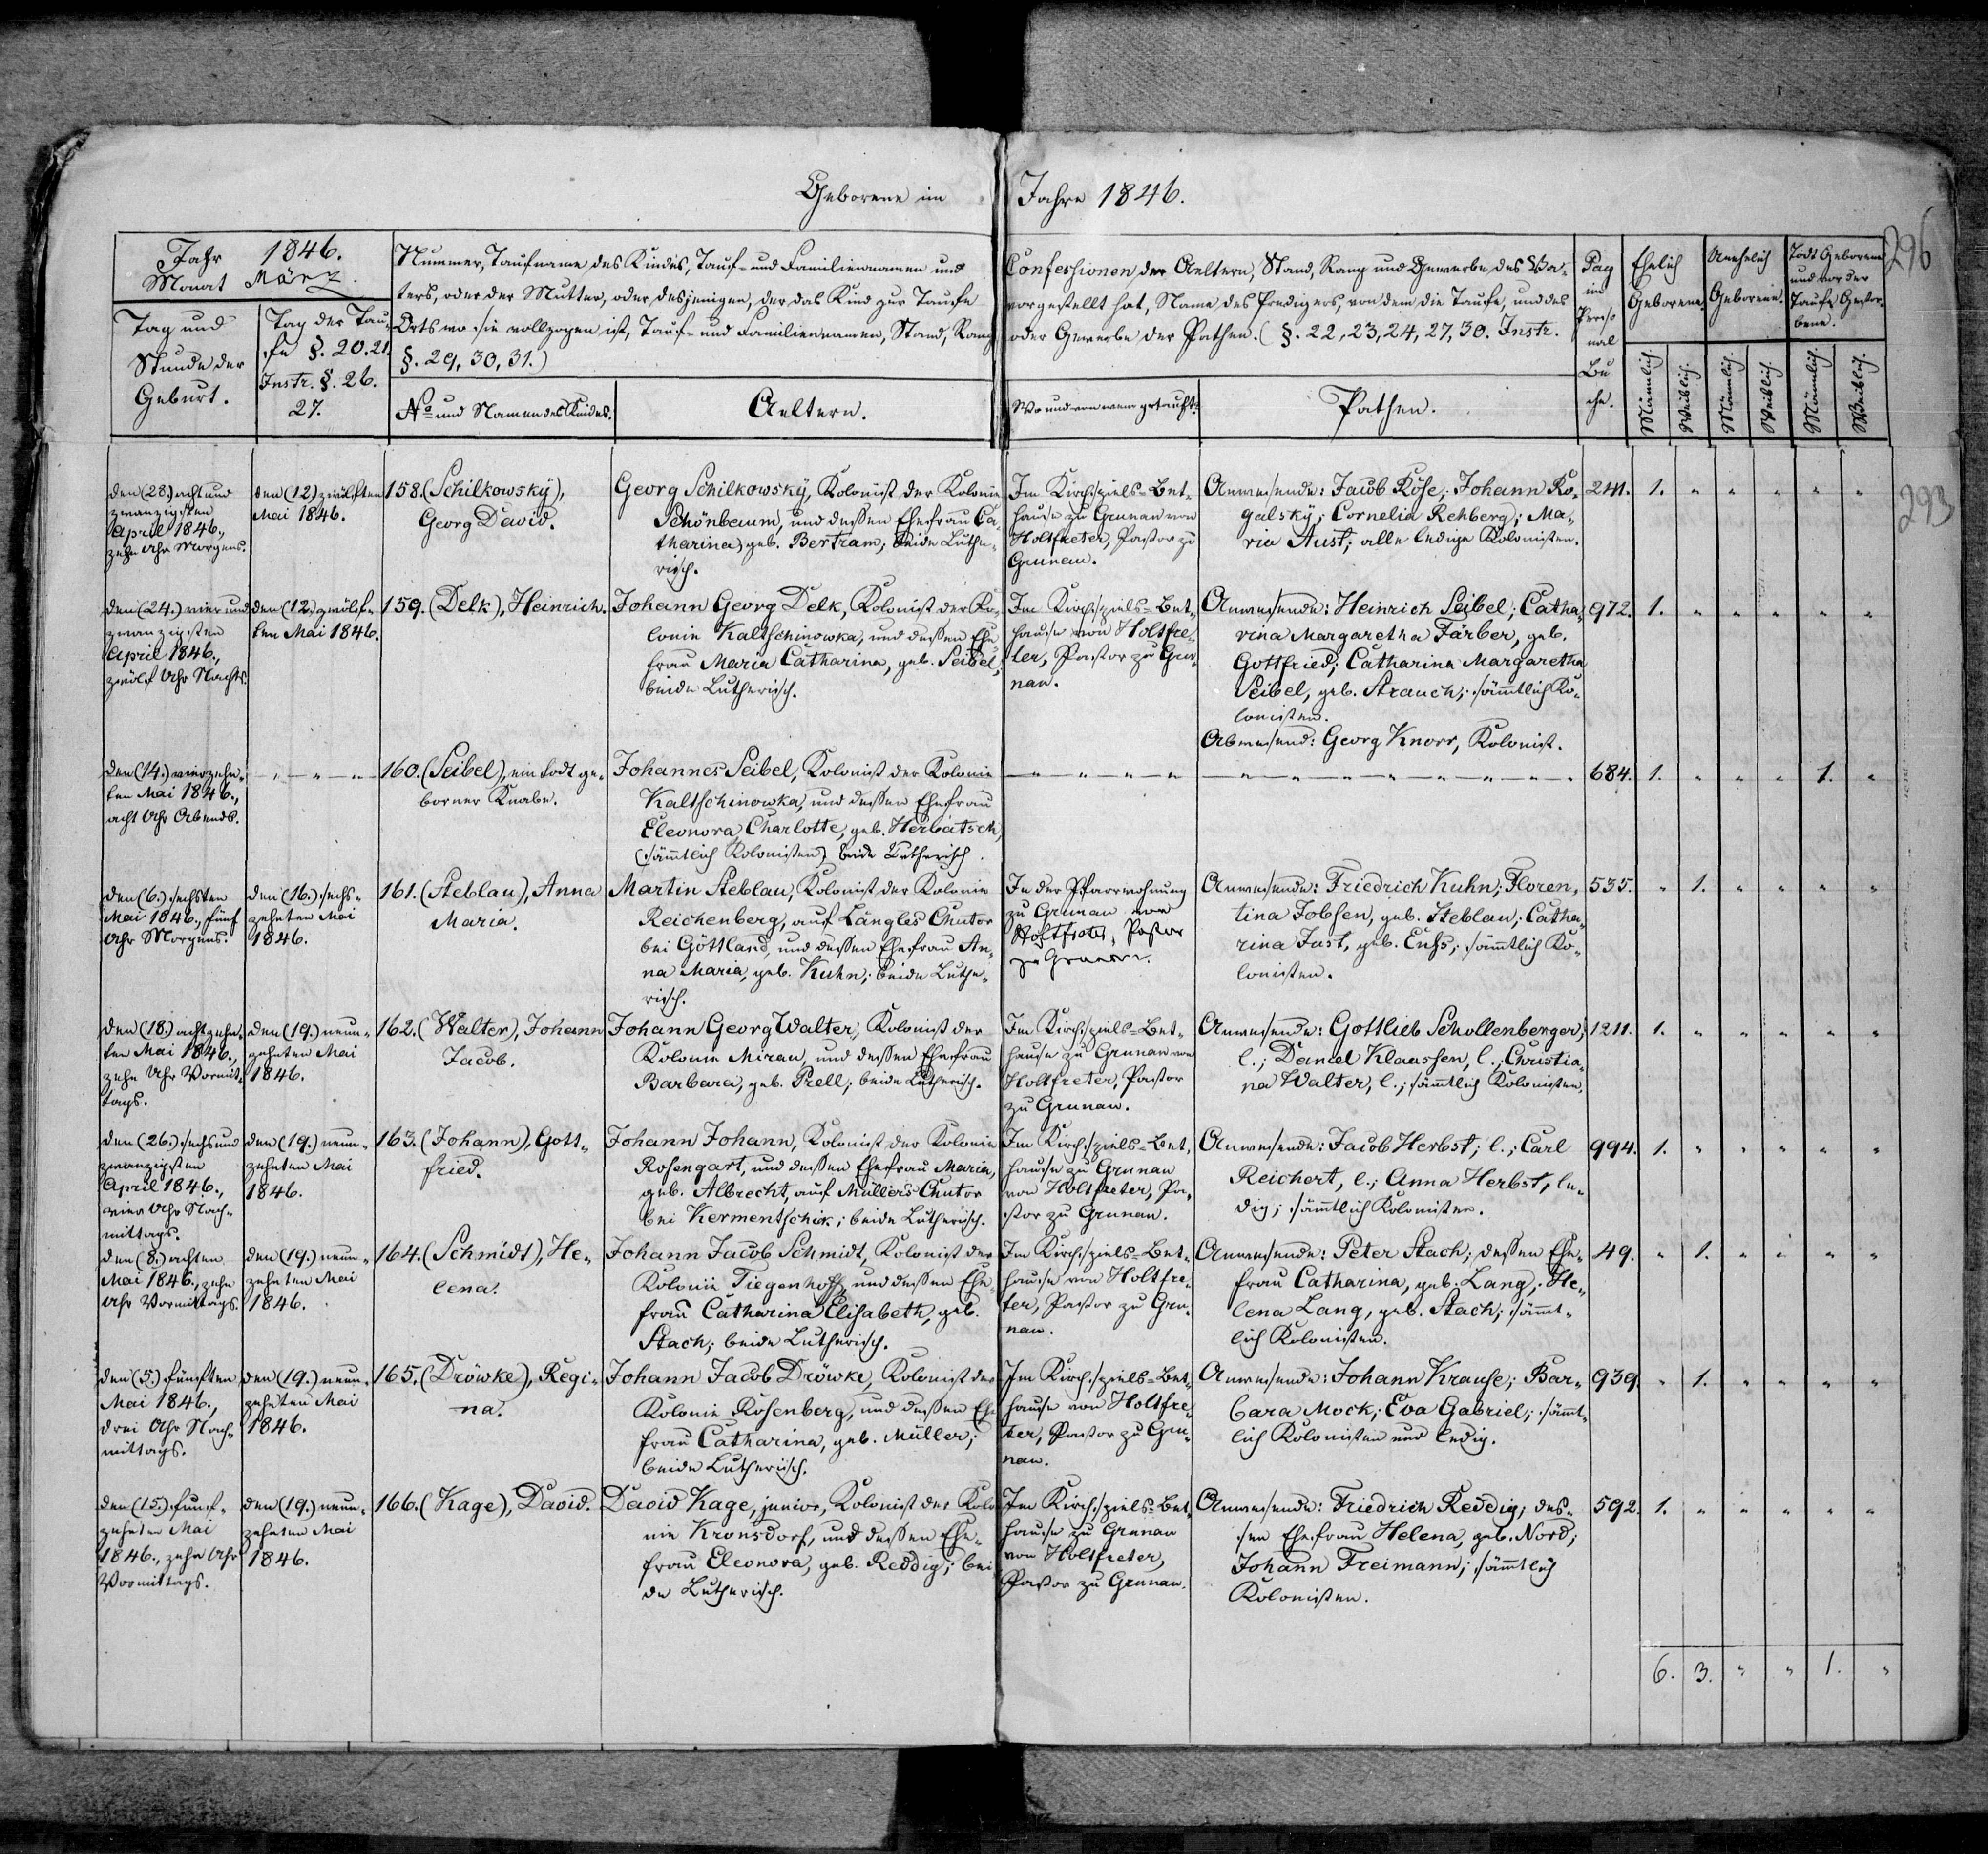 Geborene im Jahre 1846.
296
293
Jahr 1846.
Monat März.
Tag und
Stunde der
Geburt.
Tag der Tau-
fe §. 20. 21.
Instr. §. 26.
27.
Nummer, Taufname des Kindes, Tauf- und Familiennamen und
Confessionen der Aeltern, Stand, Rang und Gewerbe des Va-
ters, oder der Mutter, oder desjenigen, der das Kind zur Taufe
vorgestellt hat, Name des Predigers, von dem die Taufe, und des
Orts wo sie vollzogen ist, Tauf- und Familiennamen, Stand, Rang
oder Gewerbe der Pathen. (§. 22, 23, 24, 27, 30. Instr.
§. 29, 30, 31.)
No und Namen des Kindes.
Aeltern.
Wo und von wem getauft.
Pathen.
Pag
im
Perso
nal
Bu
che.
Ehelich
Geborene.
Unehelich
Geborene.
Todt Geborene
und vor der
Taufe Gestor-
bene.
Männlich.
Weiblich.
Männlich.
Weiblich.
Männlich.
Weiblich.
den (28.) acht und
zwanzigsten
April 1846.,
zehn Uhr Morgens.
den (12) zwölften
Mai 1846.
158. (Schilkowskÿ),
Georg David.
Georg Schilkowskÿ, Kolonist der Kolonie
Schönbaum, und dessen Ehefrau Ca-
tharina, geb. Bertram; beide Luthe-
risch.
Im Kirchspiels-Bet-
hause zu Grunau von
Holtfreter, Pastor zu
Grunau.
Anwesende: Jacob Röse; Johann Ro-
galskÿ; Cornelia Rehberg; Ma-
ria Aust; alle ledige Kolonisten.
241. 1. " " " " "
den (24.) vier und
zwanzigsten
April 1846.,
zwölf Uhr Nachts.
den (12.) zwölf-
ten Mai 1846.
159. (Delk), Heinrich.
Johann Georg Delk, Kolonist der Ko-
lonie Kaltschinowka, und dessen Ehe-
frau Maria Catharina, geb. Seibel;
beide Lutherisch.
Im Kirchspiels-Bet-
hause von Holtfre-
ter, Pastor zu Gru-
nau.
Anwesende: Heinrich Seibel; Catha-
rina Margaretha Färber, geb.
Gottfried; Catharina Margaretha
Seibel, geb. Strauch; sämtlich Ko-
lonisten.
Abwesend: Georg Knorr, Kolonist.
972. 1. " " " " "
den (14.) vierzehn-
ten Mai 1846.,
acht Uhr Abends.
— " — " — "
160. (Seibel), ein todt ge-
borner Knabe.
Johannes Seibel, Kolonist der Kolonie
Kaltschinowka, und dessen Ehefrau
Eleonora Charlotte, geb. Herbatsch,
(sämtlich Kolonisten) beide Lutherisch.
— " — " — " — "
— " — " — " — " — " — " — "
684. 1. " " " 1. "
den (6.) sechsten
Mai 1846., fünf
Uhr Morgens.
den (16.) sechs-
zehnten Mai
1846.
161. (Steblau), Anna
Maria.
Martin Steblau, Kolonist der Kolonie
Reichenberg, auf Längles Chutor
bei Göttland, und dessen Ehefrau An-
na Maria, geb. Kuhn; beide Luthe-
risch.
In der Pfarrwohnung
zu Grunau von
Holtfreter, Pastor
zu Grunau.
Anwesende: Friedrich Kuhn; Floren-
tina Jobsen, geb. Steblau; Catha-
rina Just, geb. Enss; sämtlich Ko-
lonisten.
535. " 1. " " " "
den (18.) achtzehn-
ten Mai 1846.,
zehn Uhr Vormit-
tags.
den (19.) neun-
zehnten Mai
1846.
162. (Walter), Johann
Jacob.
Johann Georg Walter, Kolonist der
Kolonie Mirau, und dessen Ehefrau
Barbara, geb. Prell; beide Lutherisch.
Im Kirchspiels-Bet-
hause zu Grunau von
Holtfreter, Pastor
zu Grunau.
Anwesende: Gottlieb Schollenberger,
l.; Daniel Klaassen, l.; Christia-
na Walter, l.; sämtlich Kolonisten.
1211. 1. " " " " "
den (26.) sechs und
zwanzigsten
April 1846.,
vier Uhr Nach-
mittags.
den (19.) neun-
zehnten Mai
1846.
163. (Johann), Gott-
fried.
Johann Johann, Kolonist der Kolonie
Rosengart, und dessen Ehefrau Maria,
geb. Albrecht, auf Müllers Chutor
bei Kermentschik; beide Lutherisch.
Im Kirchspiels-Bet-
hause zu Grunau
von Holtfreter, Pa-
stor zu Grunau.
Anwesende: Jacob Herbst; l.; Carl
Reichert, l.; Anna Herbst, le-
dig; sämtlich Kolonisten.
994. 1. " " " " "
den (8.) achten
Mai 1846., zehn
Uhr Vormittags.
den (19.) neun-
zehnten Mai
1846.
164. (Schmidt), He-
lena.
Johann Jacob Schmidt, Kolonist der
Kolonie Tiegenhoff, und dessen Ehe-
frau Catharina Elisabeth, geb.
Stach; beide Lutherisch.
Im Kirchspiels-Bet-
hause von Holtfre-
ter, Pastor zu Gru-
nau.
Anwesende: Peter Stach; dessen Ehe-
frau Catharina, geb. Lang; He-
lena Lang, geb. Stach; sämt-
lich Kolonisten.
49. " 1. " " " "
den (5.) fünften
Mai 1846.,
drei Uhr Nach-
mittags.
den (19.) neun-
zehnten Mai
1846.
165. (Dröwke), Regi-
na.
Johann Jacob Dröwke, Kolonist der
Kolonie Rosenberg, und dessen Ehe
frau Catharina, geb. Müller;
beide Lutherisch.
Im Kirchspiels-Bet-
hause von Holtfre-
ter, Pastor zu Gru-
nau.
Anwesende: Johann Krause; Bar-
bara Mock; Eva Gabriel; sämt-
lich Kolonisten und ledig.
939. " 1. " " " "
den (15.) funf-
zehnten Mai
1846., zehn Uhr
Vormittags.
den (19.) neun-
zehnten Mai
1846.
166. (Kage), David.
David Kage, junior, Kolonist der Kolo
nie Kronsdorf, und dessen Ehe-
frau Eleonora, geb. Reddig; bei
de Lutherisch.
Im Kirchspiels-Bet-
hause zu Grunau
von Holtfreter,
Pastor zu Grunau.
Anwesende: Friedrich Reddig; des-
sen Ehefrau Helena, geb. Nord;
Johann Freimann; sämtlich
Kolonisten.
592. 1. " " " " "
6. 3. " " 1. "